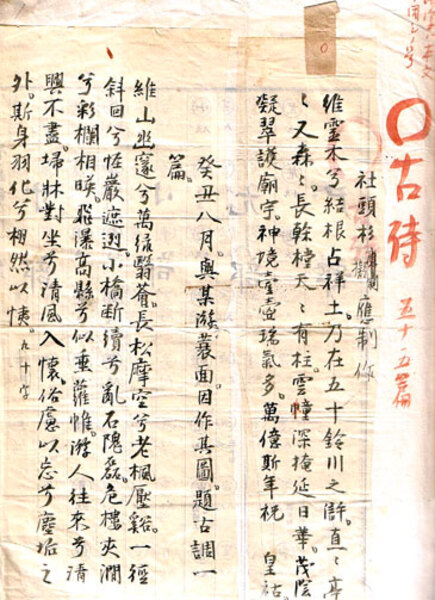 〇古詩 五十五篇
社頭杉 應制作
維霊木兮結根占祥土乃在五十鈴川之滸直〻亭
〻又森〻長幹樘天〻有柱雲幢深掩延日華茂陰
凝翠護廟宇神境壹壺瑞氣多萬億斯年祝 皇祜
癸丑八月與某游蓑面因作其圖題古調一
篇
維山幽邃兮萬緑翳薈長松摩空兮老楓壓谿一徑
斜回兮恠巖遮迾小橋断續兮亂石隗磊危樓夾澗
兮彩欄相暎飛瀑高縣兮似垂蘿帷游人往來兮清
興不盡埽牀對坐兮清風入懐俗慮以忘兮塵垢之
外斯身羽化兮栩然以怡 九十字